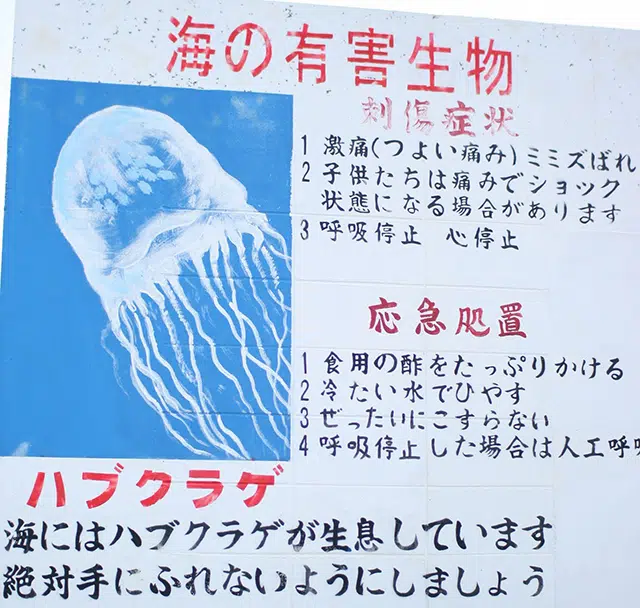 海の有害生物
刺傷症状
1 激痛(つよい痛み)ミミズばれ
2 子供たちは痛みでショック
状態になる場合があります
3 呼吸停止 心停止
応急処置
1 食用の酢をたっぷりかける
2 冷たい水でひやす
3 ぜったいにこすらない
4 呼吸停止した場合は人工呼吸
ハブクラゲ
海にはハブクラゲが生息しています
絶対手にふれないようにしましょう